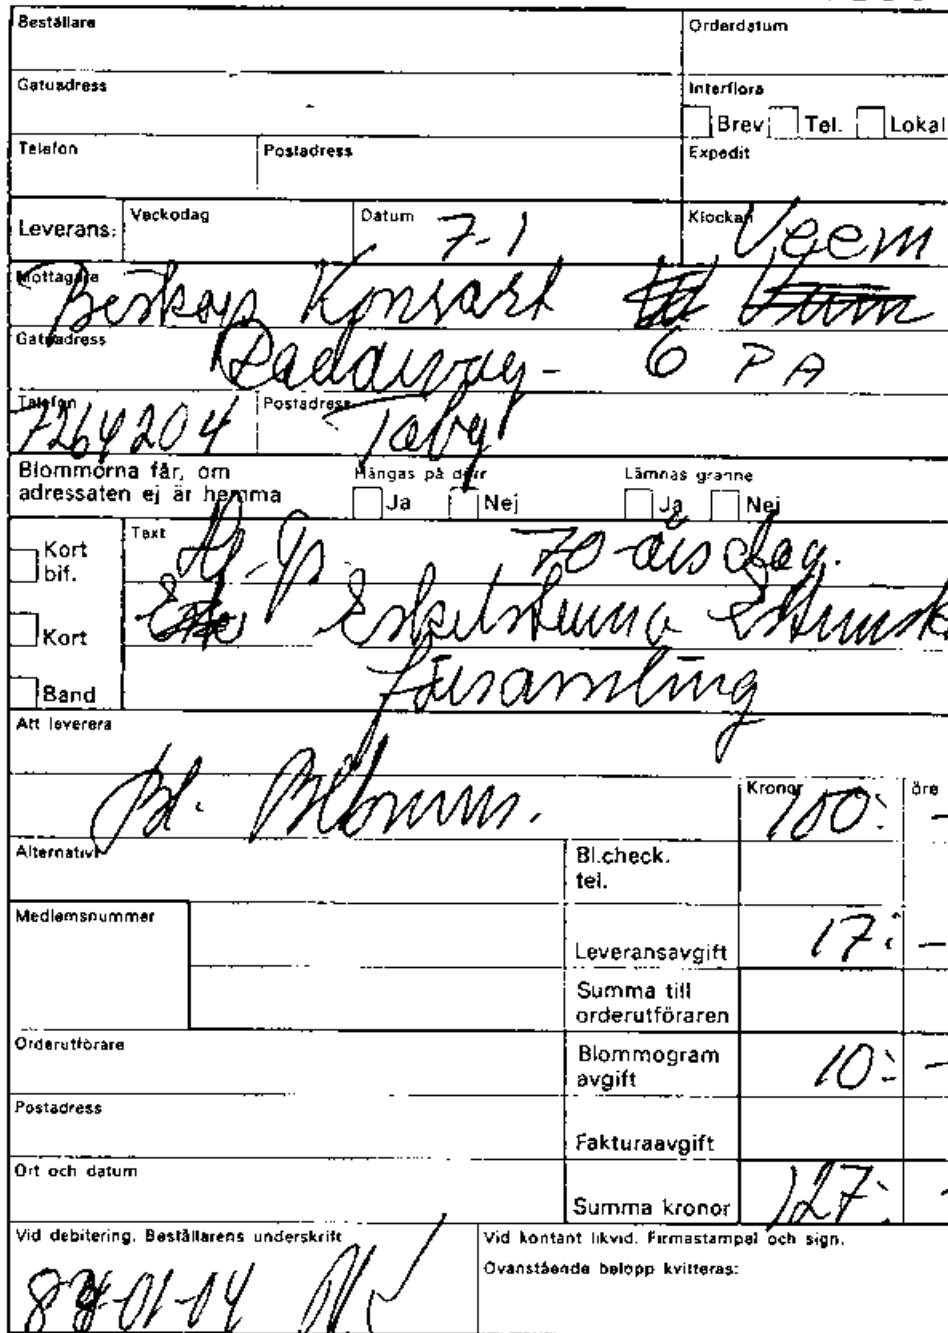 Beställare
Orderdatum
Gatuadress
Interflora
Brev Tel. Lokal
Telefon Postadress
Expedit
Leverans: Veckodag Datum 7-1
Klockan Veem
Mottagare Konsart
Gatuadress 6 PA
Telefon 7264204 Postadress Täby
Blommorna får, om adressaten ej är hemma
Hängas på dörr
Ja Nej
Lämnas granne
Ja Nej
Kort bif.
Text 70-årsdag.
Kort
Eskilstuna
Band
Församling
Att leverera
Bl. Blomm.
Kronor 100:
öre -
Alternativ
Bl.check. tel.
Medlemsnummer
Leveransavgift 17: -
Summa till orderutföraren
Orderutförare
Blommogram avgift 10: -
Postadress
Fakturaavgift
Ort och datum
Summa kronor 127: -
Vid debitering. Beställarens underskrift
-01-04
Vid kontant likvid. Firmastampel och sign.
Ovanstående belopp kvitteras: